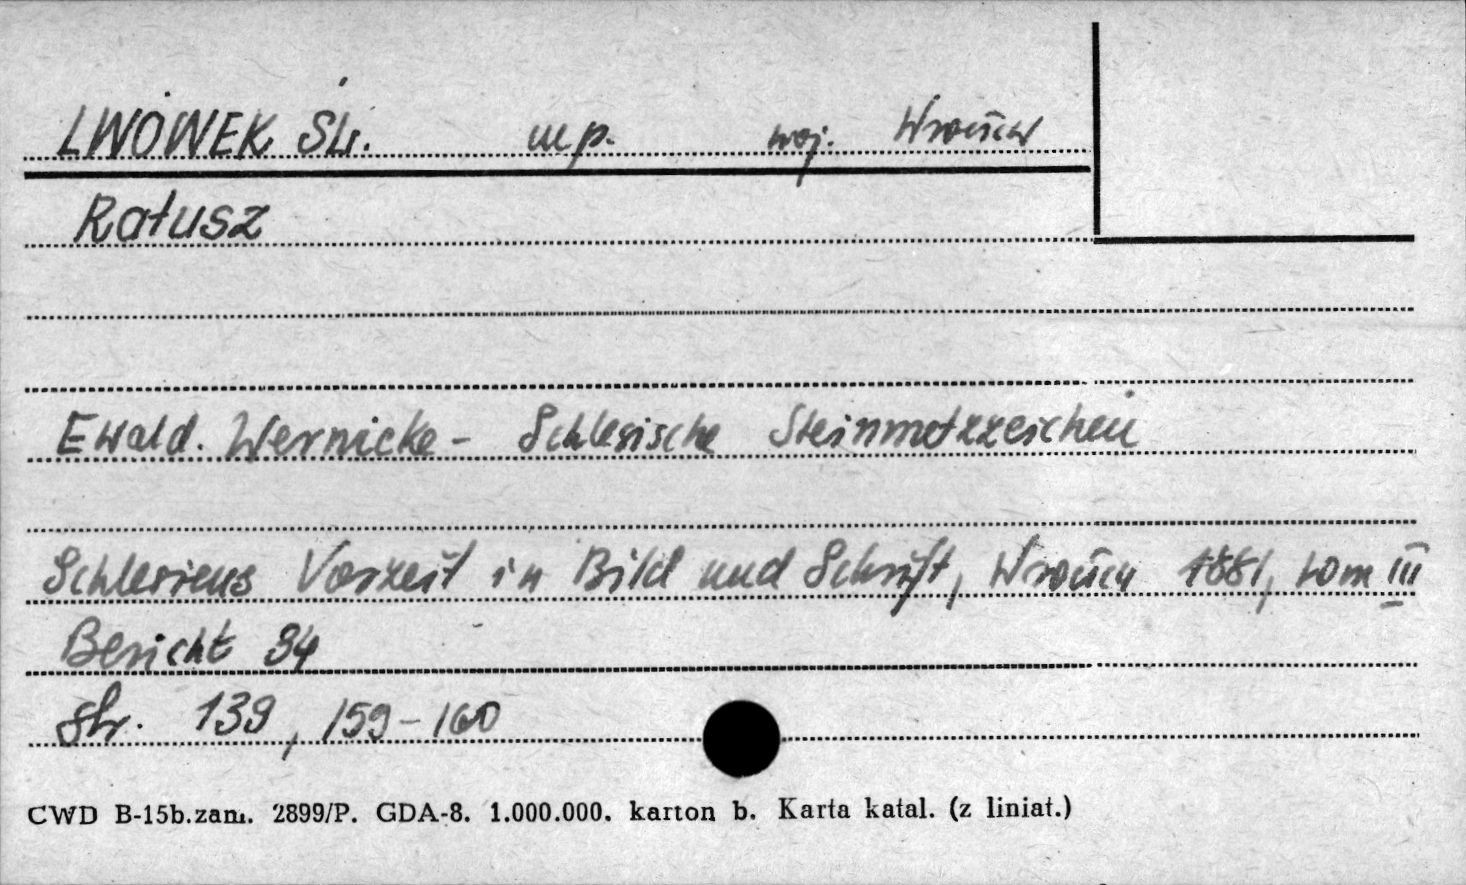 LWÓWEK ŚL. m p. woj. Wrocław
Ratusz
Ewald. Wernicke - Schlesische Steinmetzzeichen
Schlesiens Vorzeit in Bild und Schrift, Wrocław 1881, tom III
Bericht 34
str. 139, 159-160
CWD B-15b.zam. 2899/P. GDA-8. 1.000.000. karton b. Karta katal. (z liniat.)